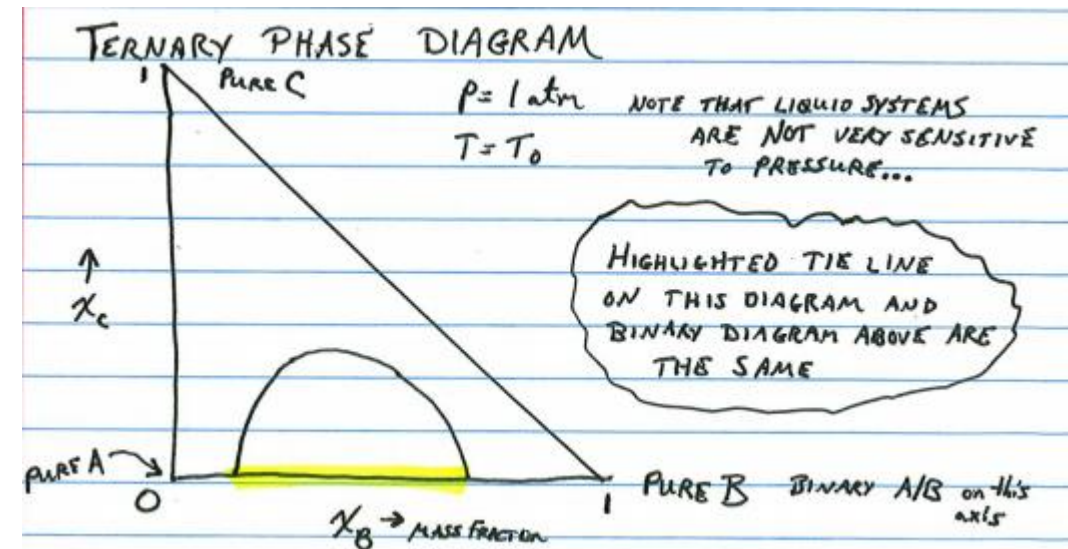 TERNARY PHASE DIAGRAM
1 PURE C
P = 1 atm
T = T₀
NOTE THAT LIQUID SYSTEMS
ARE NOT VERY SENSITIVE
TO PRESSURE...
HIGHLIGHTED TIE LINE
ON THIS DIAGRAM AND
BINARY DIAGRAM ABOVE ARE
THE SAME
↑
x_c
PURE A →
0
x_B → MASS FRACTION
1
PURE B BINARY A/B on this
axis